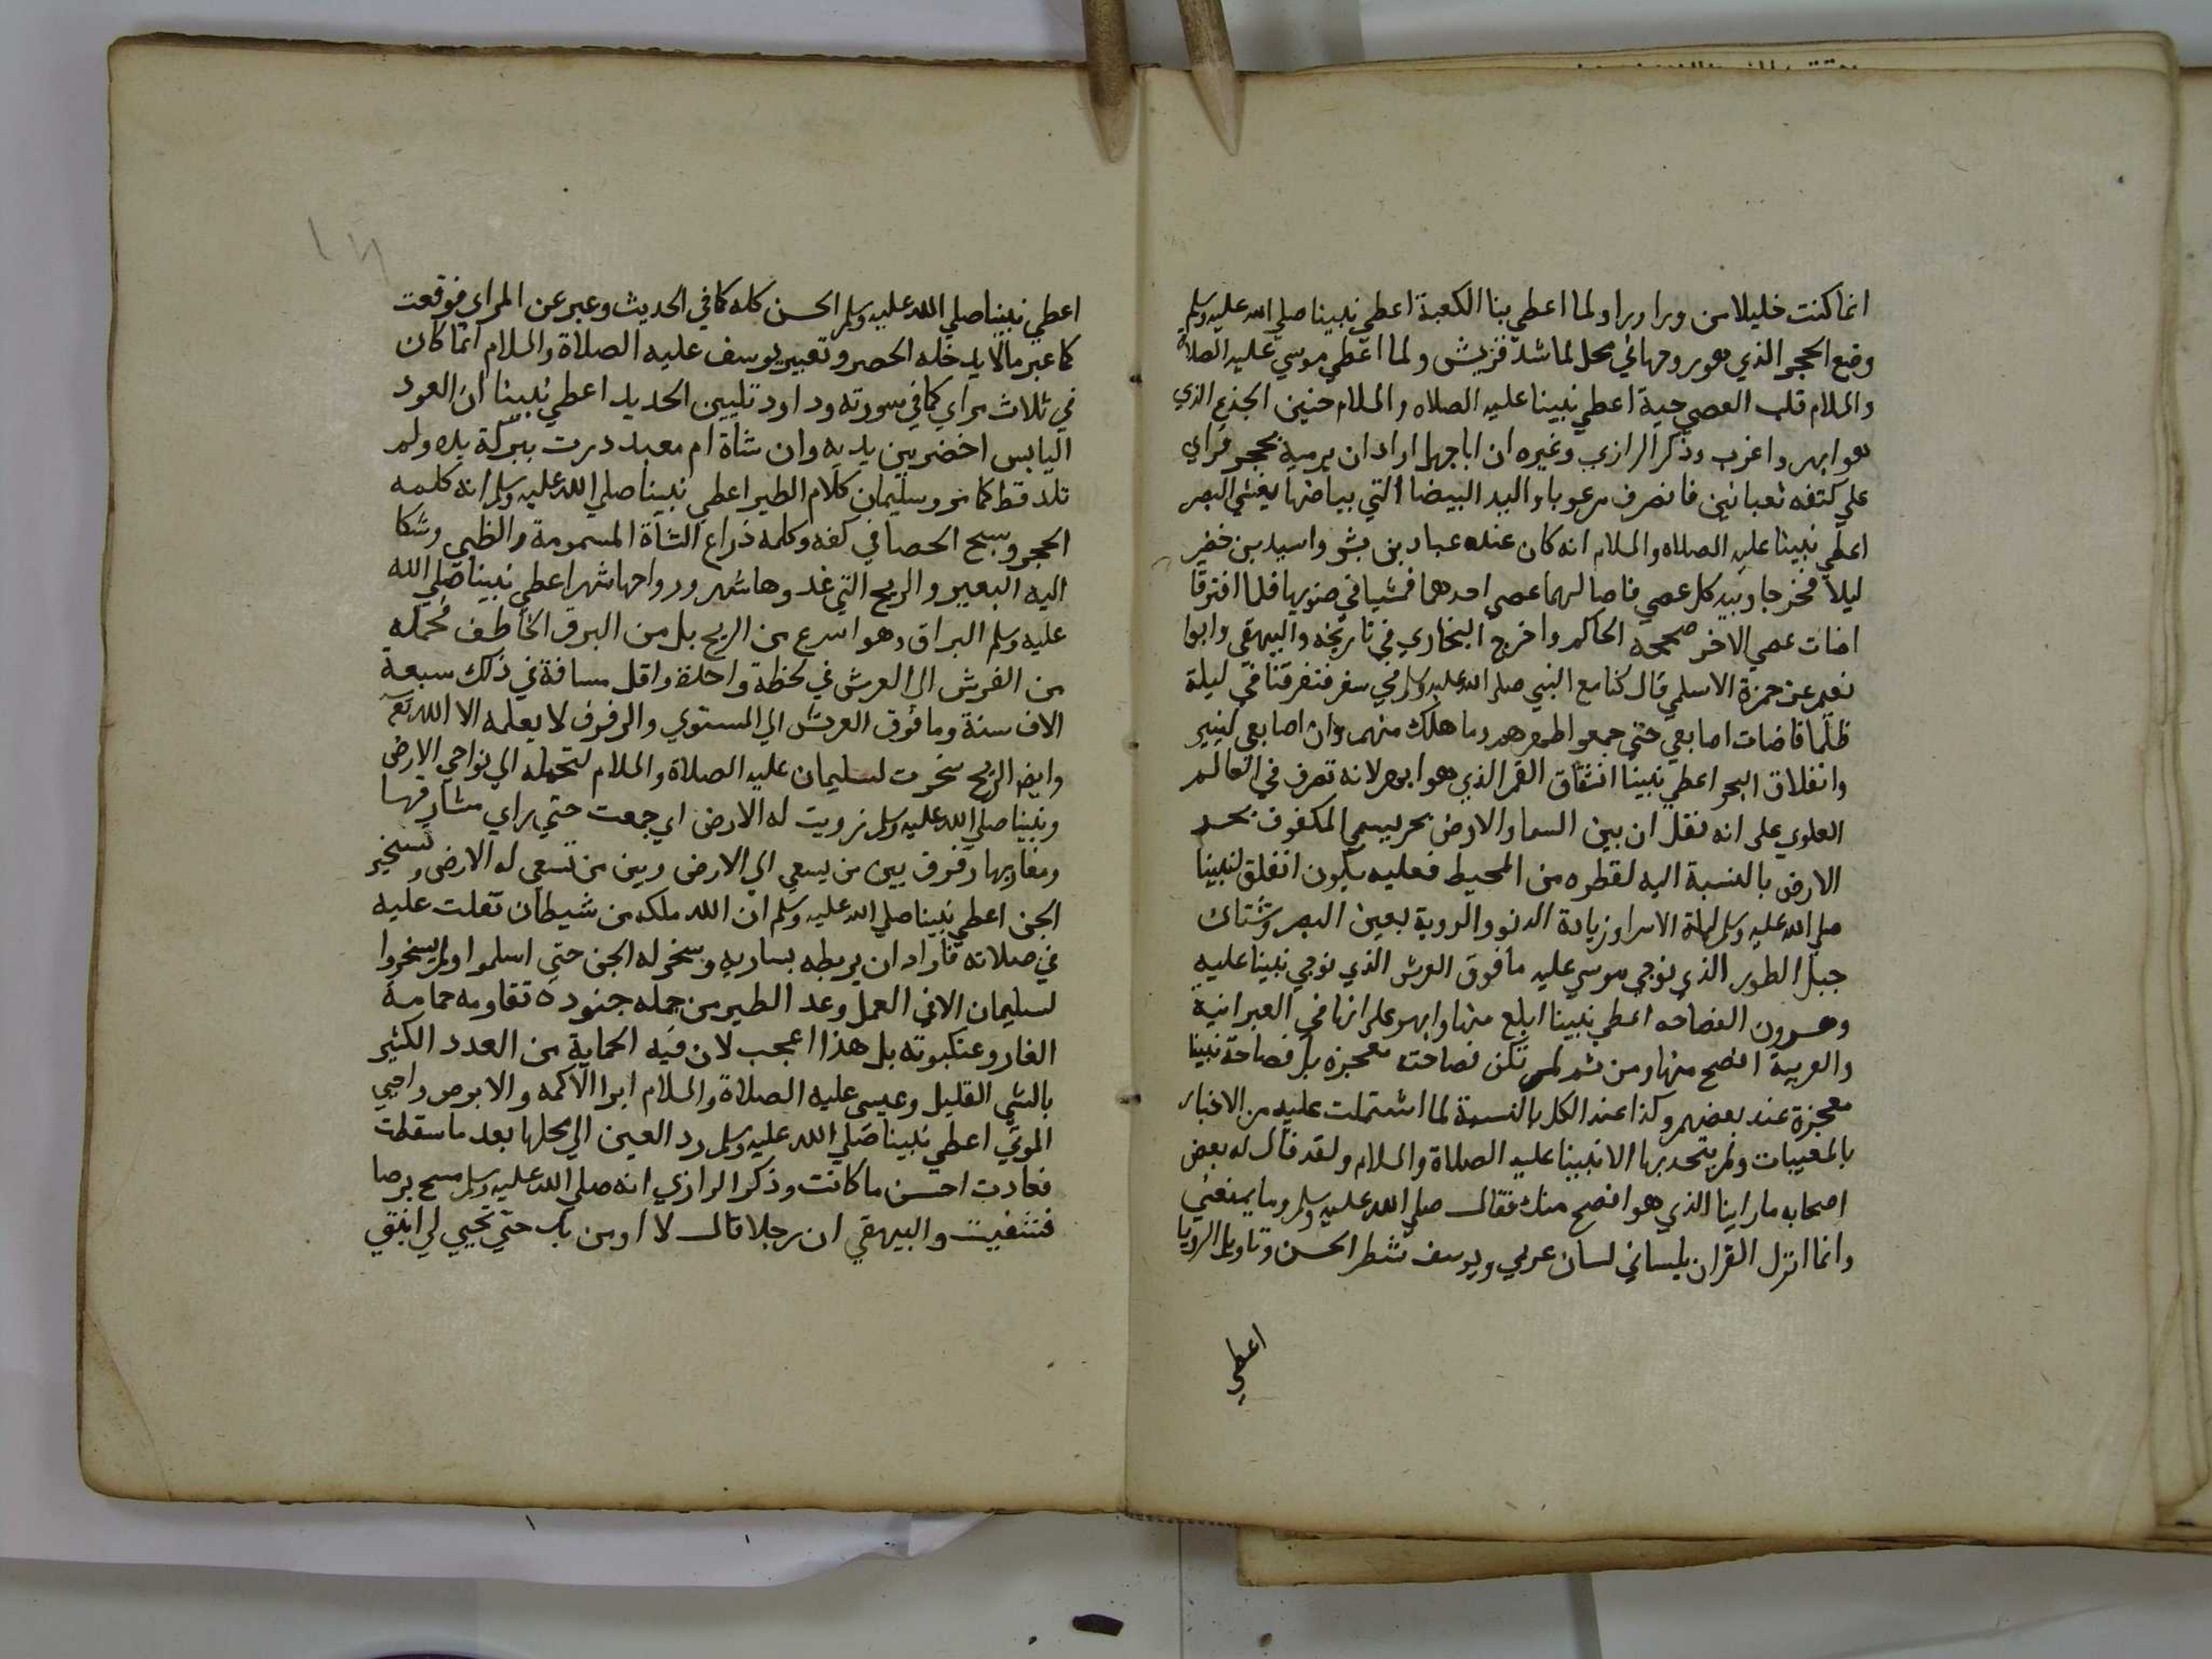 انما كنت خليلا من ورا ورا ولما اعطي بنا الكعبة اعطي نبينا صلي الله عليه وسلم
وضع الحجر الذي هو روحها في محل لما شد قريش ولما اعطي موسي عليه الصلاة
والسلام قلب العصي حية اعطي نبينا عليه الصلاه والسلام حنين الجذع الذي
هو ابهر واغرب وذكر الرازي وغيره ان اباجهل اراد ان يرميه بحجر فراي
علي كتفه ثعبانين فانصرف مرعوبا واليد البيضا التي بياضها يغشي البصر
اعطي نبينا عليه الصلاه والسلام انه كان عنده عباد بن بشر واسيد بن حضير
ليلا فخرجا وبيد كل عصي فاضا لهما عصي احدهما فمشيا في ضوئها فلما افترقا
اضات عصي الاخر صححه الحاكم واخرج البخاري في تاريخه والبيهقي وابوا
نعيم عن حمزة الاسلمي قال كنا مع النبي صلي الله عليه وسلم في سفر فتفرقنا في ليلة
ظلما فاضات اصابعي حتي جمعوا ظهرهم وما هلك منهم وان اصابعي لينير
وانفلاق البحر اعطي نبينا انشقاق القمر الذي هو ابهر لانه تصرف في العالم
العلوي علي انه نقل ان بين السما والارض بحر يسمي المكفوف بحر
الارض بالنسبة اليه لقطره من المحيط فعليه يكون انفلق لنبينا
صلي الله عليه وسلم ليلة الاسرا وزيادة الدنو والروية بعين البصر وشتان
جبل الطور الذي نوجي موسي عليه ما فوق العرش الذي نوجي نبينا عليه
وهرون الفصاحه اعطي نبينا ابلغ منها وابهر علي انها في العبرانية
والعربية افصح منها ومن ثم لم تكن فصاحته معجزه بل فصاحة نبينا
معجزة عند بعضهم وكذا عند الكل بالنسبة لما اشتملت عليه من الاخبار
بالمغيبات ولم يتحد بها الا نبينا عليه الصلاة والسلام ولقد قال له بعض
اصحابه ما راينا الذي هو افصح منك فقال صلي الله عليه وسلم وما يمنعني
وانما انزل القران بلساني لسان عربي ويوسف شطر الحسن وتاويل الرويا
اعطي
اعطي نبينا صلي الله عليه وسلم الحسن كله كما في الحديث وعبر عن المراي فوقعت
كما عبر مالا يدخله الحصر وتعبير يوسف عليه الصلاة والسلام انما كان
في ثلاث مراي كما في سورته وداود تليين الحديد اعطي نبينا ان العود
اليابس اخضر بين يديه وان شاة ام معبد درت ببركة يده ولم
تلد قط كما مر وسليمان كلام الطير اعطي نبينا صلي الله عليه وسلم انه كلمه
الحجر وسبح الحصا في كفه وكلمه ذراع الشاة المسمومة والظبي وشكا
اليه البعير والريح التي غدوها شهر ورواحها شهر اعطي نبينا صلي الله
عليه وسلم البراق وهو اسرع من الريح بل من البرق الخاطف فحمله
من الفرش الي العرش في لحظة واحدة واقل مسافة في ذلك سبعة
الاف سنة وما فوق العرش الي المستوي والرفرف لا يعلمه الا الله تع
وايض الريح سخرت لسليمان عليه الصلاة والسلام لتحمله الي نواحي الارض
ونبينا صلي الله عليه وسلم زويت له الارض اي جمعت حتي راي مشارقها
ومغاربها وفرق بين من يسعي الي الارض وبين من تسعي له الارض وتسخير
الجن اعطي نبينا صلي الله عليه وسلم ان الله ملكه من شيطان تفلت عليه
في صلاته فاراد ان يربطه بساريه وسخر له الجن حتي اسلموا ولم يسخروا
لسليمان الا في العمل وعد الطير من جمله جنوده تقاومه حمامة
الغار وعنكبوته بل هذا اعجب لان فيه الحماية من العدد الكثير
بالشي القليل وعيسى عليه الصلاة والسلام ابرا الاكمه والابرص واحيي
الموتي اعطي نبينا صلي الله عليه وسلم رد العين الي محلها بعد ما سقطت
فعادت احسن ما كانت وذكر الرازي انه صلي الله عليه وسلم مسح برصا
فشفيت والبيهقي ان رجلا قال لا اومن بك حتي تحيي لي ابنتي